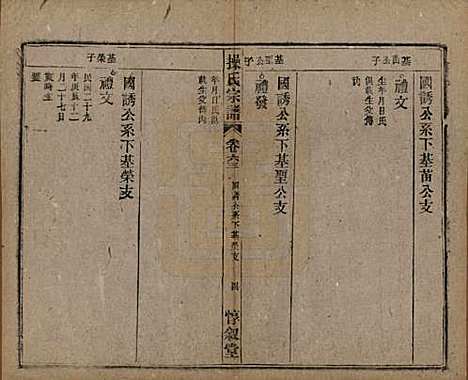 國誘公系下基苗公支
基苗公子
禮文
生年月日氏
俱載生堂傳
國誘公系下基聖公支
基聖公子
禮發
年月日氏俱
載生堂傳內
操氏宗譜
卷六
國誘公系下基榮支
四
惇敘堂
國誘公系下基榮支
基榮子
禮文
民國二十九
年庚辰十二
月二十七日
亥時生